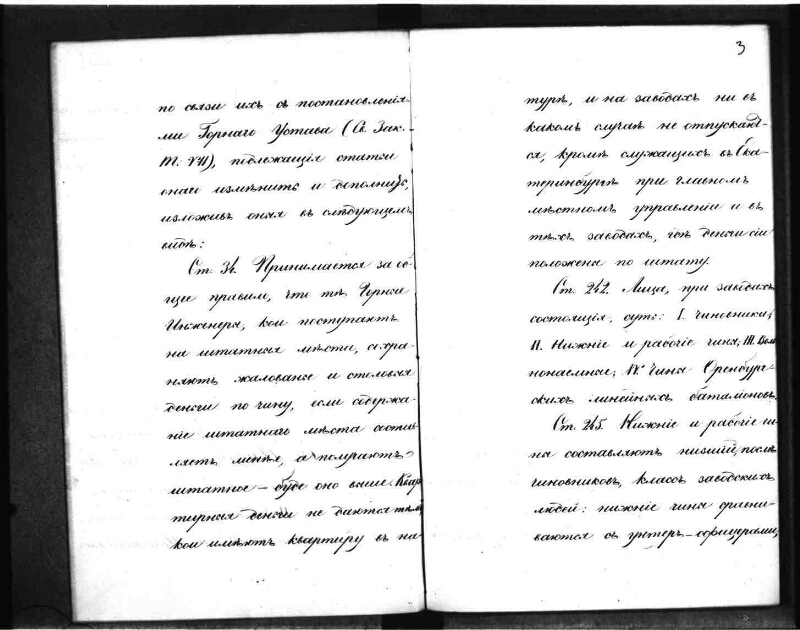 по связи ихъ съ постановленія-
ми Горнаго Устава (Св. Зак.
Т. VII), подлежащія статьи
онаго измѣнить и дополнить,
изложивъ оныя въ слѣдующемъ
видѣ:
Ст. 34. Принимается за об-
щее правило, что тѣ Горные
Инженеры, кои поступаютъ
на штатныя мѣста, сохра-
няютъ жалованье и столовыя
деньги по чину, если содержа-
ніе штатнаго мѣста состав-
ляетъ менѣе, а получаютъ
штатное – буде оно выше. Квар
тирныя деньги не даются тѣмъ
кои имѣютъ квартиру въ на-
3
турѣ, и на заводахъ ни въ
какомъ случаѣ не отпускают-
ся, кромѣ служащихъ въ Ека-
теринбургѣ при главномъ
мѣстномъ управленіи и въ
тѣхъ заводахъ, гдѣ деньги сіи
положены по штату.
Ст. 242. Лица, при заводахъ
состоящія, суть: I. Чиновники;
II. Нижніе и рабочіе чины; III. Воль
нонаемные; IV. Чины Оренбург-
скихъ линейныхъ баталіоновъ.
Ст. 245. Нижніе и рабочіе чи-
ны составляютъ низшій, послѣ
чиновниковъ, классъ заводскихъ
людей: нижніе чины сравни-
ваются съ унтеръ-офицерами,